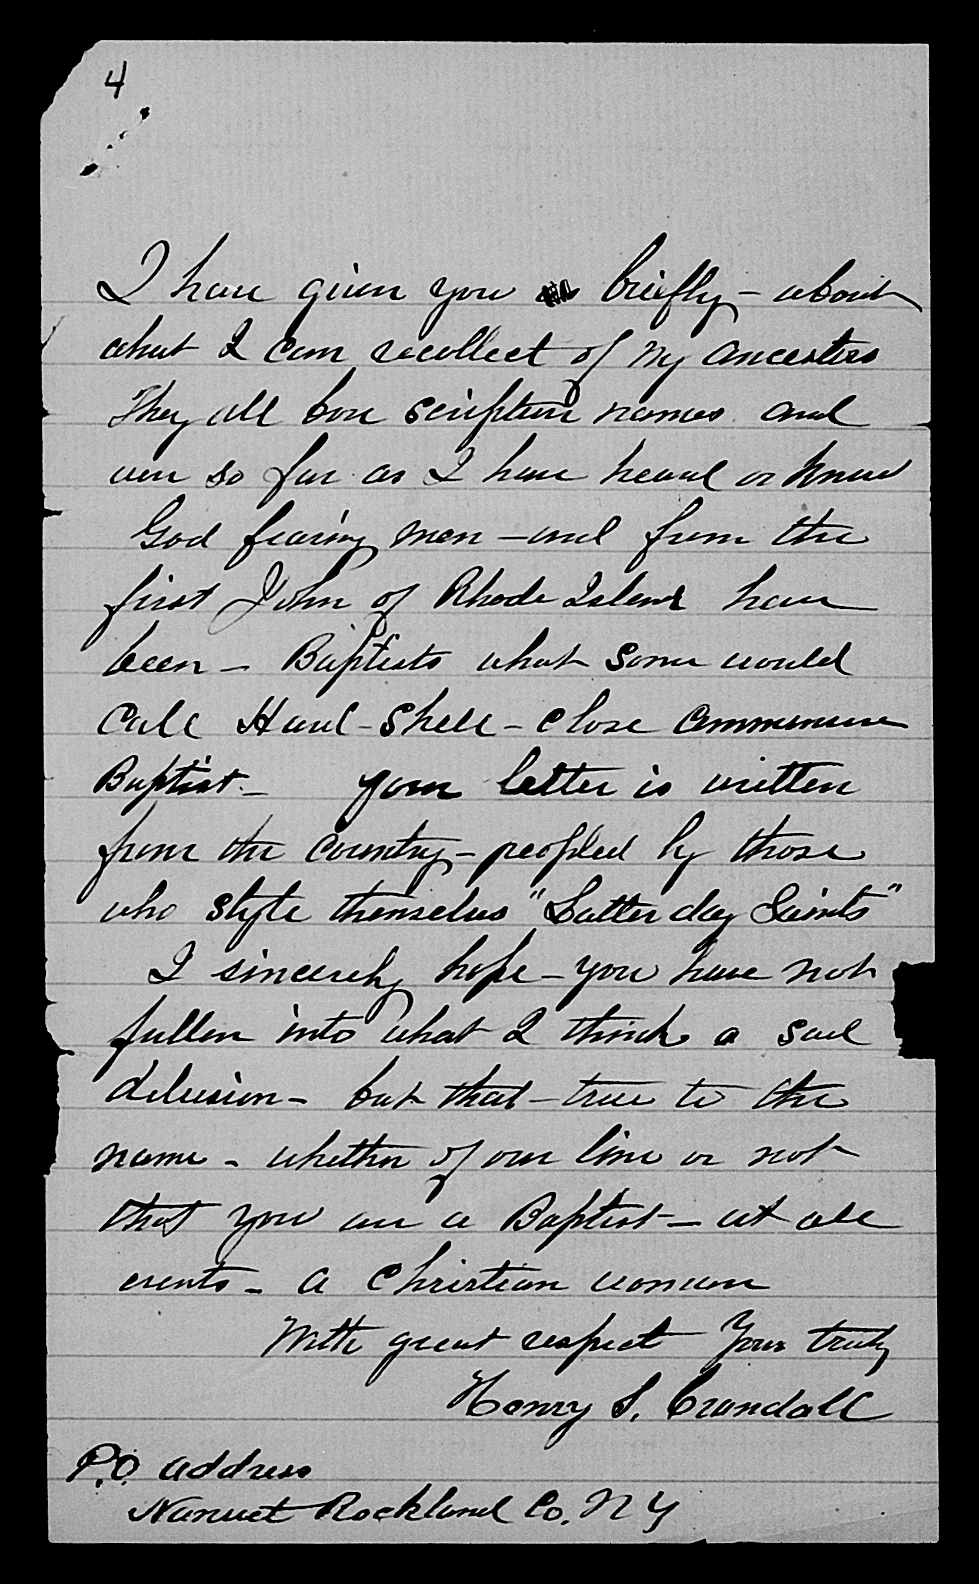 4
I have given you briefly - about
what I can recollect of my ancestors
They all bore scripture names and
were so far as I have heard or know
God fearing men - and from the
first John of Rhode Island have
been - Baptists what some would
call Hard-Shell - close
Baptist - your letter is written
from the Country - peopled by those
who style themselves "Latter day Saints"
I sincerely hope - you have not
fallen into what I think a sad
delusion - but that - true to the
name - whether of our line or not
that you are a Baptist - at all
events - a Christian woman
With great respect Yours truly
Henry S. Crandall
P.O. address
Nanuet Rockland Co. N Y